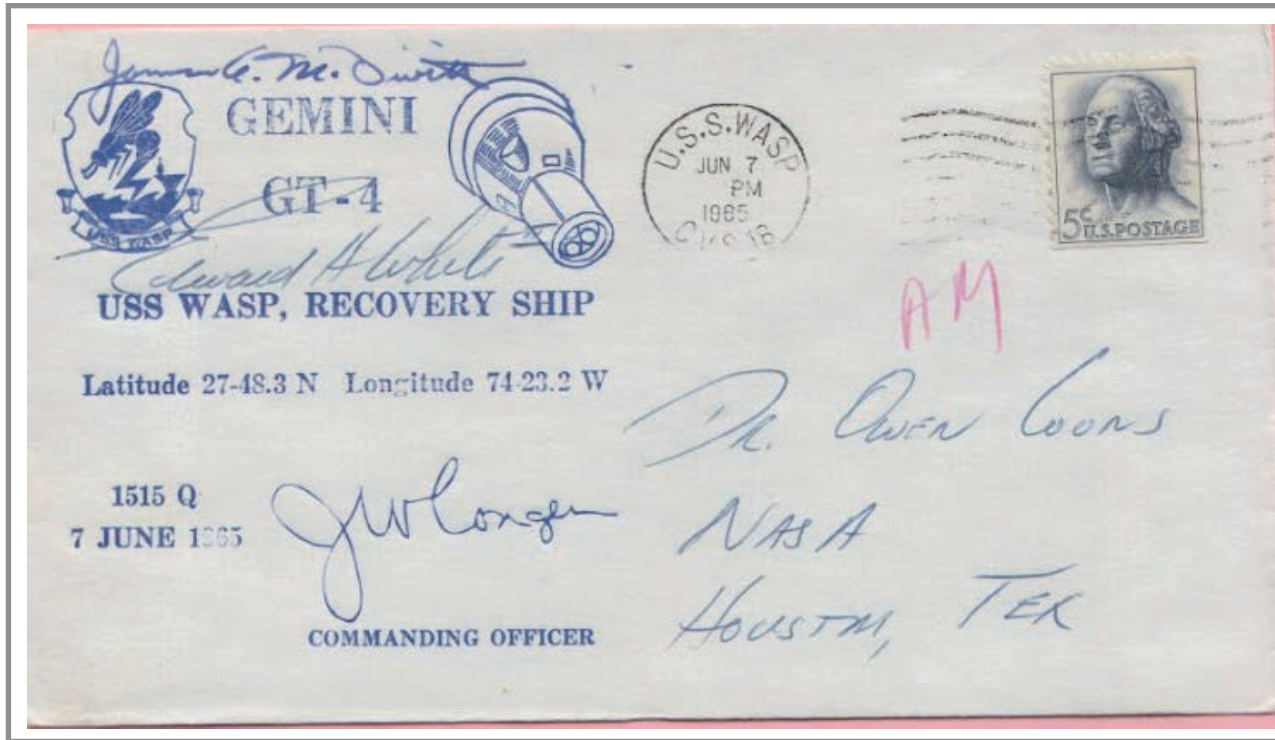 James A. McDivitt
GEMINI
GT-4
USS WASP
Edward H White
USS WASP, RECOVERY SHIP
Latitude 27-48.3 N Longitude 74-23.2 W
1515 Q
7 JUNE 1965
JW Conger
COMMANDING OFFICER
U.S.S. WASP
JUN 7
PM
1965
5¢
U.S. POSTAGE
AM
DR. OWEN COONS
NASA
HOUSTON, TEX